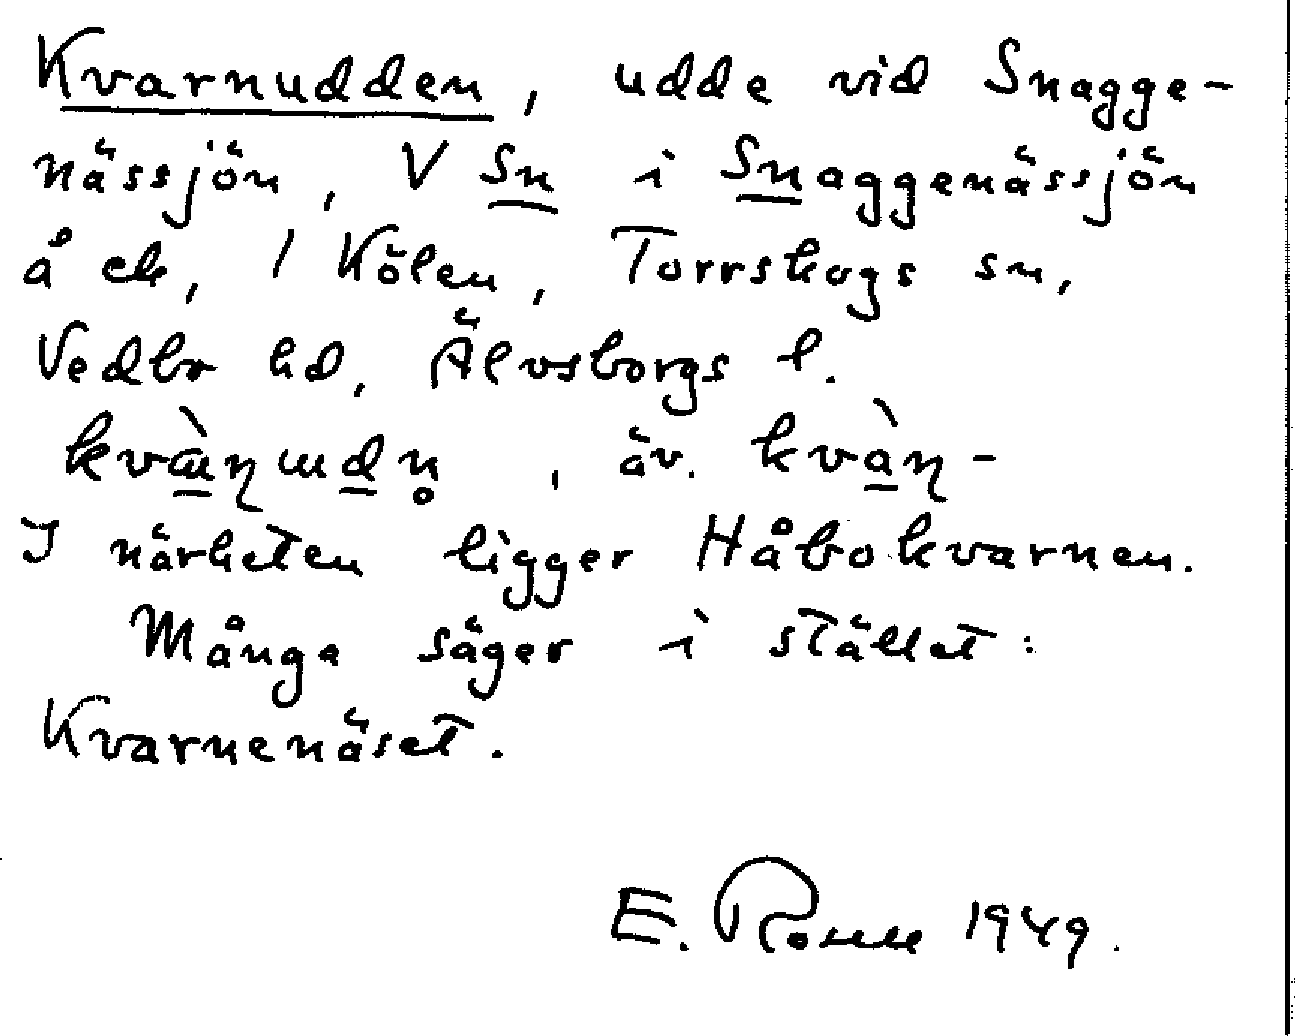 Kvarnudden, udde vid Snagge-
nässjön, V Sn i Snaggenässjön
å ek, / Kölen, Torrskogs sn,
Vedbo hd, Älvsborgs l.
, äv.
I närheten ligger Håbokvarnen.
Många säger i stället:
Kvarnenäset.
E. 1949.